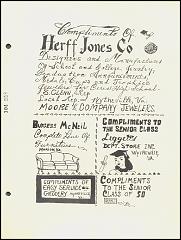 Compliments Of
Herff Jones Co
Designers and Manufacturers
Of School and College Jewelry
Graduation Announcements
Medals, Cups and Trophies
Jeweler for
High School
Local Rep. Wytheville, Va.
MOORE & COMPANY JEWELERS
Burgess McNeil
Complete Line Of
Furniture
COMPLIMENTS OF
EASY SERVICE
GROCERY
COMPLIMENTS TO
THE SENIOR CLASS
Leggetts
DEPT. STORE INC.
WYTHEVILLE
VA.
COMPLIMENTS
TO THE SENIOR
CLASS OF 50